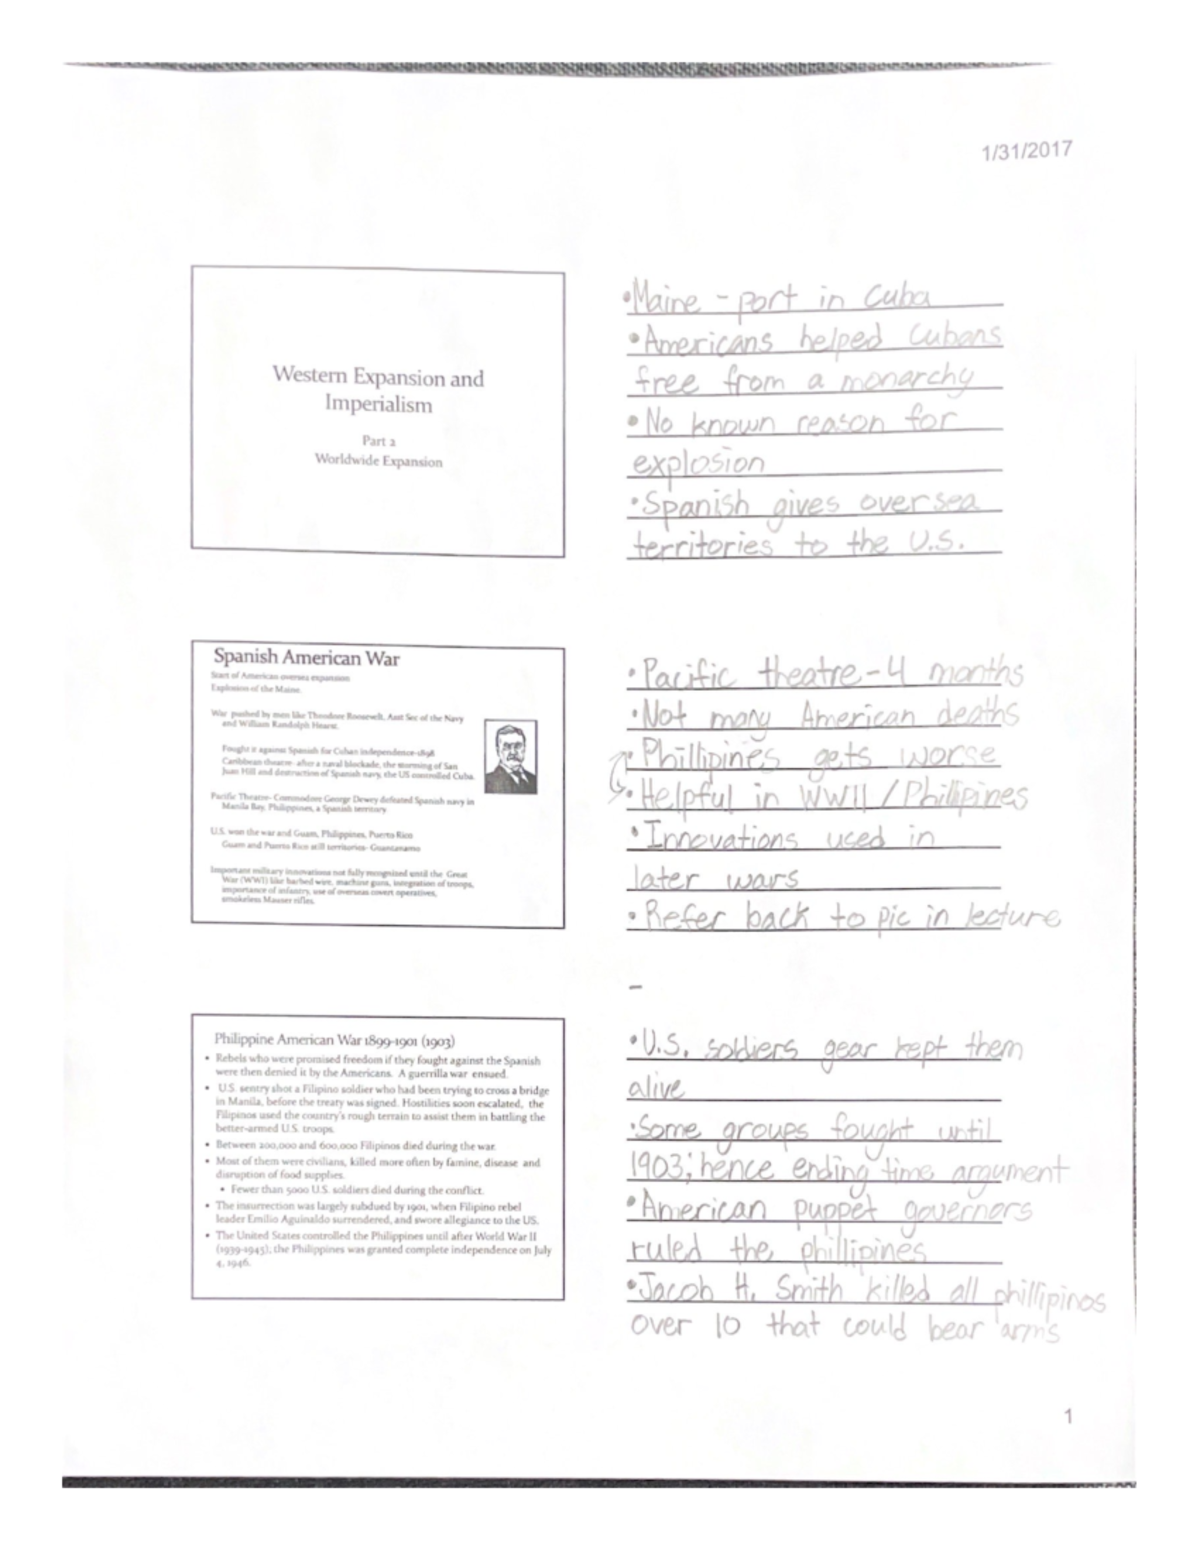 1/31/2017
Western Expansion and
Imperialism
Part 2
Worldwide Expansion
•Maine - port in Cuba
•Americans helped Cubans
free from a monarchy
•No known reason for
explosion
•Spanish gives over sea
territories to the U.S.
Spanish American War
Start of American oversea expansion
Explosion of the Maine.
War pushed by men like Theodore Roosevelt, Asst Sec of the Navy
and William Randolph Hearst.
Fought it against Spanish for Cuban independence-1898
Caribbean theatre- after a naval blockade, the storming of San
Juan Hill and destruction of Spanish navy, the US controlled Cuba.
Pacific Theatre- Commodore George Dewey defeated Spanish navy in
Manila Bay, Philippines, a Spanish territory
U.S. won the war and Guam, Philippines, Puerto Rico
Guam and Puerto Rico still territories- Guantanamo
Important military innovations not fully recognized until the Great
War (WWI) like barbed wire, machine guns, integration of troops,
importance of infantry, use of overseas covert operatives,
smokeless Mauser rifles.
•Pacific theatre-4 months
•Not many American deaths
•Phillipines gets worse
•Helpful in WWII/Phillipines
•Innovations used in
later wars
•Refer back to pic in lecture
-
Philippine American War 1899-1901 (1903)
• Rebels who were promised freedom if they fought against the Spanish
were then denied it by the Americans. A guerrilla war ensued.
• U.S. sentry shot a Filipino soldier who had been trying to cross a bridge
in Manila, before the treaty was signed. Hostilities soon escalated, the
Filipinos used the country's rough terrain to assist them in battling the
better-armed U.S. troops.
• Between 200,000 and 600,000 Filipinos died during the war.
• Most of them were civilians, killed more often by famine, disease and
disruption of food supplies.
• Fewer than 5000 U.S. soldiers died during the conflict.
• The insurrection was largely subdued by 1901, when Filipino rebel
leader Emilio Aguinaldo surrendered, and swore allegiance to the US.
• The United States controlled the Philippines until after World War II
(1939-1945); the Philippines was granted complete independence on July
4, 1946.
•U.S. soldiers gear kept them
alive
•Some groups fought until
1903; hence ending time argument
•American puppet governors
ruled the phillipines
•Jacob H. Smith killed all phillipinos
over 10 that could bear arms
1